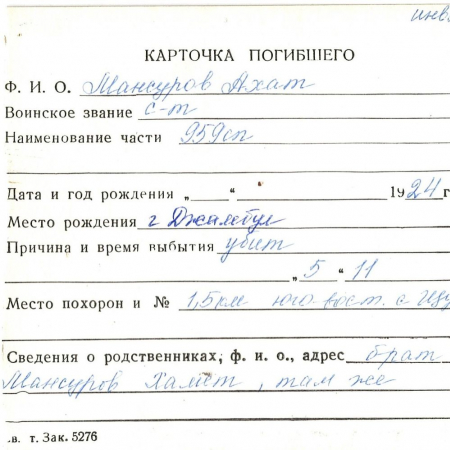 инв.
КАРТОЧКА ПОГИБШЕГО
Ф. И. О. Мансуров Ахат
Воинское звание с-т
Наименование части 959сп
Дата и год рождения „ “ 1924 г
Место рождения г Джамбул
Причина и время выбытия убит
„ 5 “ 11
Место похорон и № 1,5 км юго вост. с
Сведения о родственниках, ф. и. о., адрес брат
Мансуров Хамет, там же
.в. т. Зак. 5276